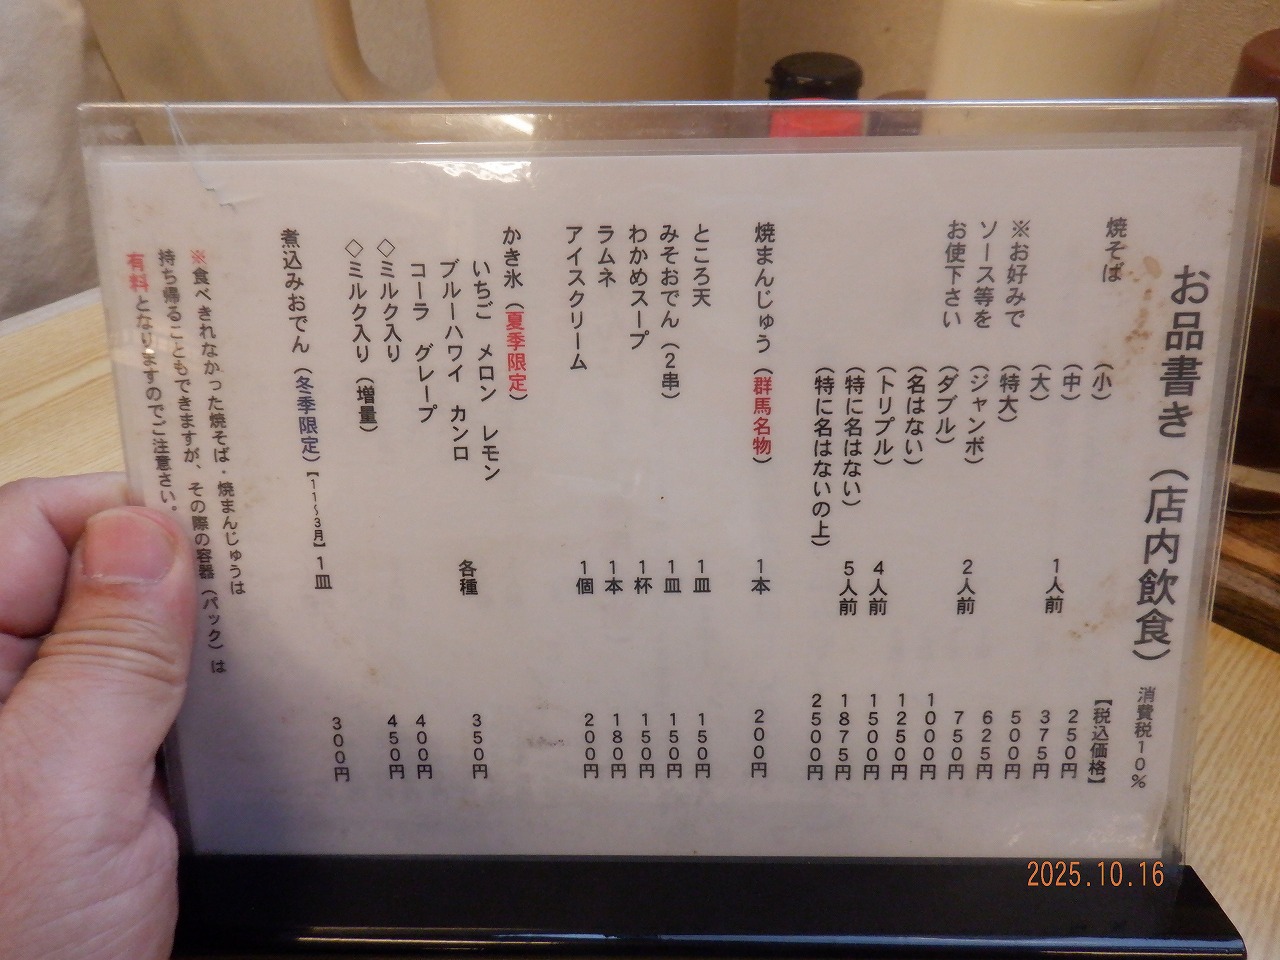 お品書き（店内飲食） 消費税１０％
【税込価格】
焼そば （小） ２５０円
（中） １人前 ３７５円
（大） ５００円
※お好みで （特大） ６２５円
ソース等を （ジャンボ） ２人前 ７５０円
お使下さい （ダブル） １０００円
（名はない） １２５０円
（トリプル） ４人前 １５００円
（特に名はない） ５人前 １８７５円
（特に名はないの上） ２５００円
焼まんじゅう（群馬名物） １本 ２００円
ところ天 １皿 １５０円
みそおでん（２串） １皿 １５０円
わかめスープ １杯 １５０円
ラムネ １本 １８０円
アイスクリーム １個 ２００円
かき氷（夏季限定）
いちご　メロン　レモン 各種 ３５０円
ブルーハワイ　カンロ
コーラ　グレープ
◇ミルク入り ４００円
◇ミルク入り（増量） ４５０円
煮込みおでん（冬季限定）【１１～３月】１皿 ３００円
※食べきれなかった焼そば・焼まんじゅうは
持ち帰ることもできますが、その際の容器（パック）は
有料となりますのでご注意さい。
2025.10.16